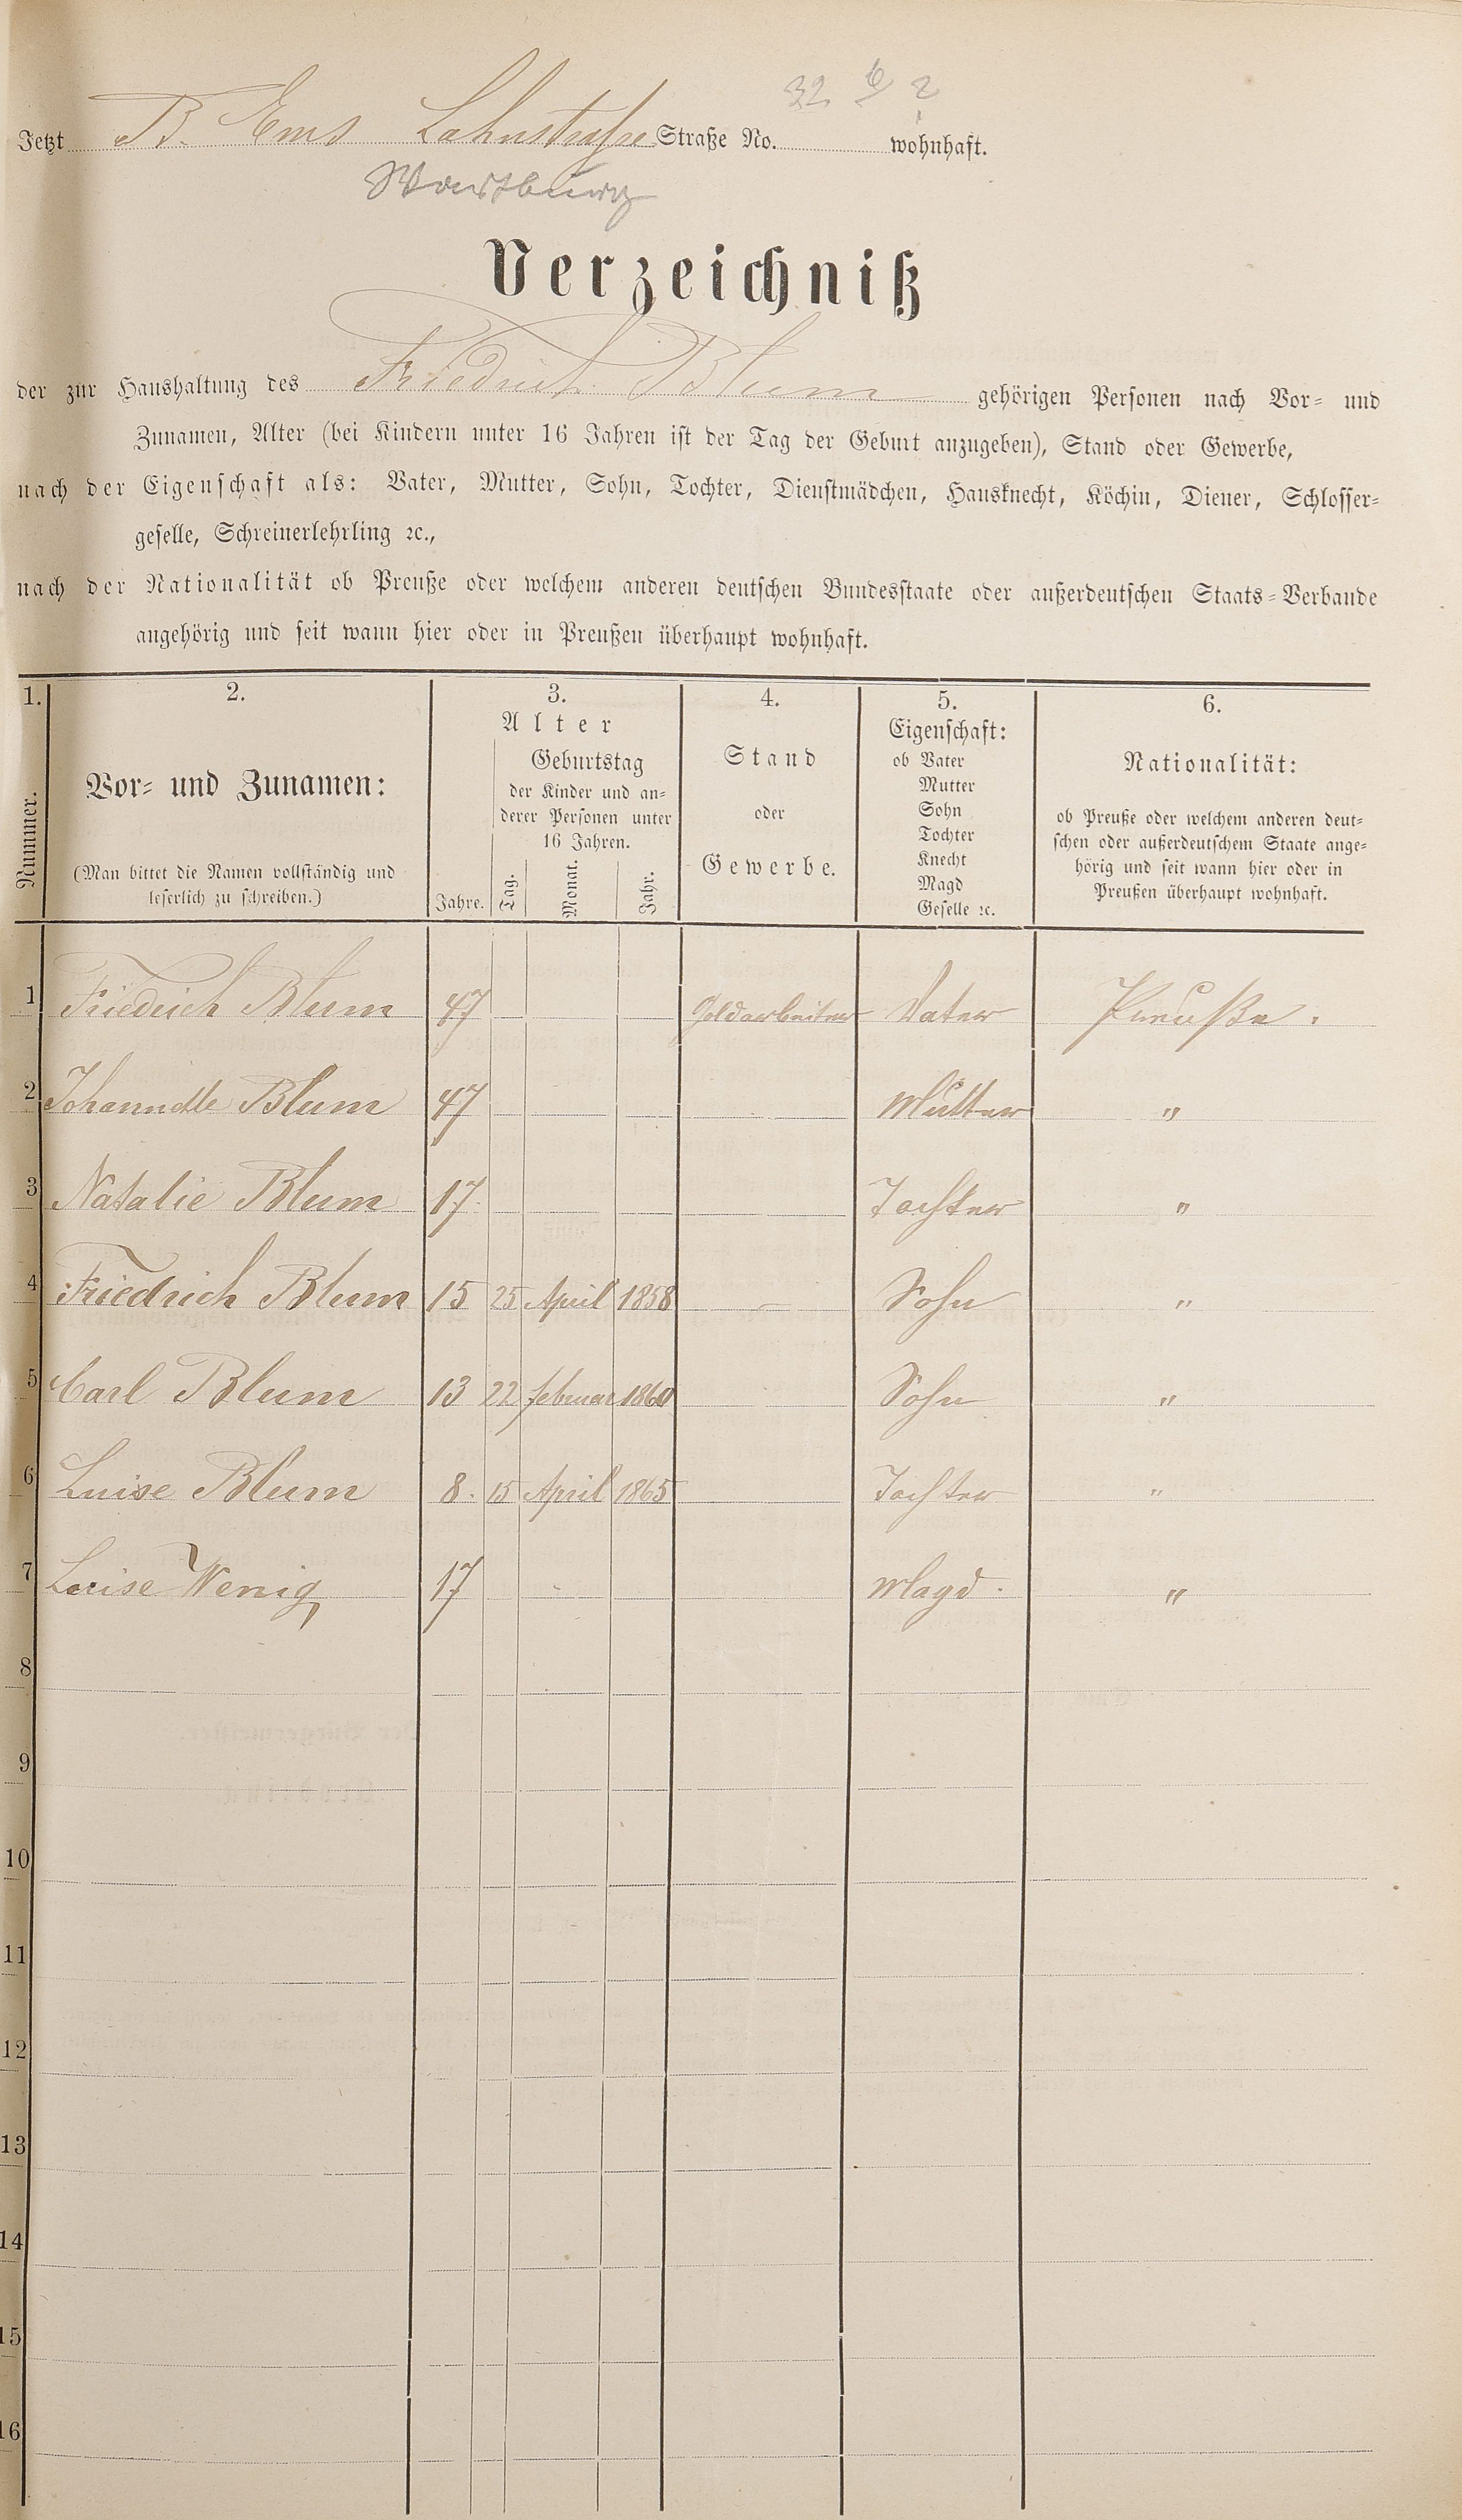 32 b 2
Jetzt B. Ems Lahnstraße Straße No. wohnhaft.
Wartburg
Verzeichniß
der zur Haushaltung des Friedrich Blum gehörigen Personen nach Vor- und
Zunamen, Alter (bei Kindern unter 16 Jahren ist der Tag der Geburt anzugeben), Stand oder Gewerbe,
nach der Eigenschaft als: Vater, Mutter, Sohn, Tochter, Dienstmädchen, Hausknecht, Köchin, Diener, Schlosser-
geselle, Schreinerlehrling ꝛc.,
nach der Nationalität ob Preuße oder welchem anderen deutschen Bundesstaate oder außerdeutschen Staats-Verbande
angehörig und seit wann hier oder in Preußen überhaupt wohnhaft.
1. 2. 3. 4. 5. 6.
Nummer.
Vor- und Zunamen:
(Man bittet die Namen vollständig und
leserlich zu schreiben.)
Alter
Jahre.
Geburtstag
der Kinder und an-
derer Personen unter
16 Jahren.
Tag. Monat. Jahr.
Stand
oder
Gewerbe.
Eigenschaft:
ob Vater
Mutter
Sohn
Tochter
Knecht
Magd
Geselle ꝛc.
Nationalität:
ob Preuße oder welchem anderen deut-
schen oder außerdeutschem Staate ange-
hörig und seit wann hier oder in
Preußen überhaupt wohnhaft.
1 Friedrich Blum 47 Goldarbeiter Vater Preuße.
2 Johannette Blum 47 Mutter "
3 Natalie Blum 17. Tochter "
4 Friedrich Blum 15 25 April 1858 — Sohn "
5 Carl Blum 13 22 februar 1860 Sohn "
6 Luise Blum 8. 15 April 1865 Tochter "
7 Louise Wenig 17 Magd. "
8
9
10
11
12
13
14
15
16